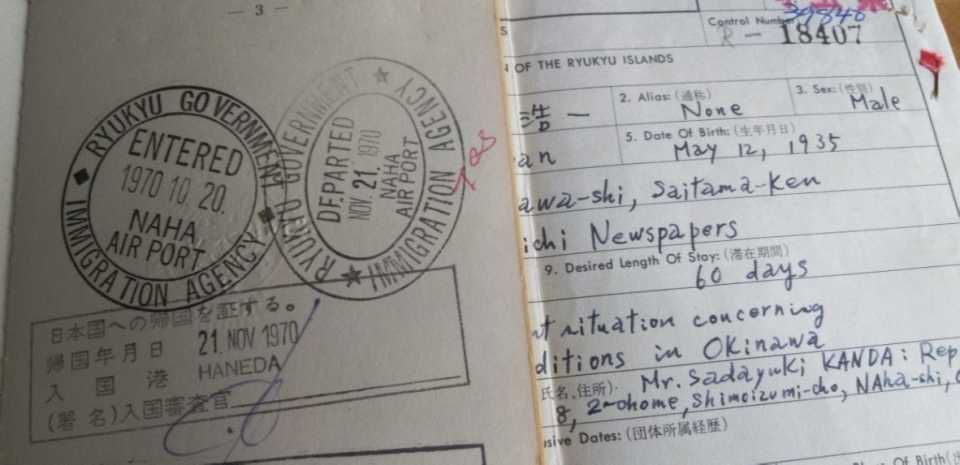 — 3 —
RYUKYU GOVERNMENT
ENTERED
1970 10. 20.
NAHA
AIR PORT
IMMIGRATION AGENCY
RYUKYU GOVERNMENT
DEPARTED
NOV. 21. 1970
NAHA
AIR PORT
IMMIGRATION AGENCY
日本国への帰国を証する。
帰国年月日 21. NOV 1970
入国港 HANEDA
(署名)入国審査官
Control Number
39840
R - 18407
OF THE RYUKYU ISLANDS
浩一
2. Alias: (通称)
None
3. Sex: (性別)
Male
an
5. Date Of Birth: (生年月日)
May 12, 1935
awa-shi, Saitama-Ken
ichi Newspapers
9. Desired Length Of Stay: (滞在期間)
60 days
nt situation concerning
ditions in Okinawa
氏名、住所) Mr. Sadayuki KANDA: Rep
8, 2-chome, Shimoizumi-cho, NAha-shi,
sive Dates: (団体所属経歴)
Of Birth